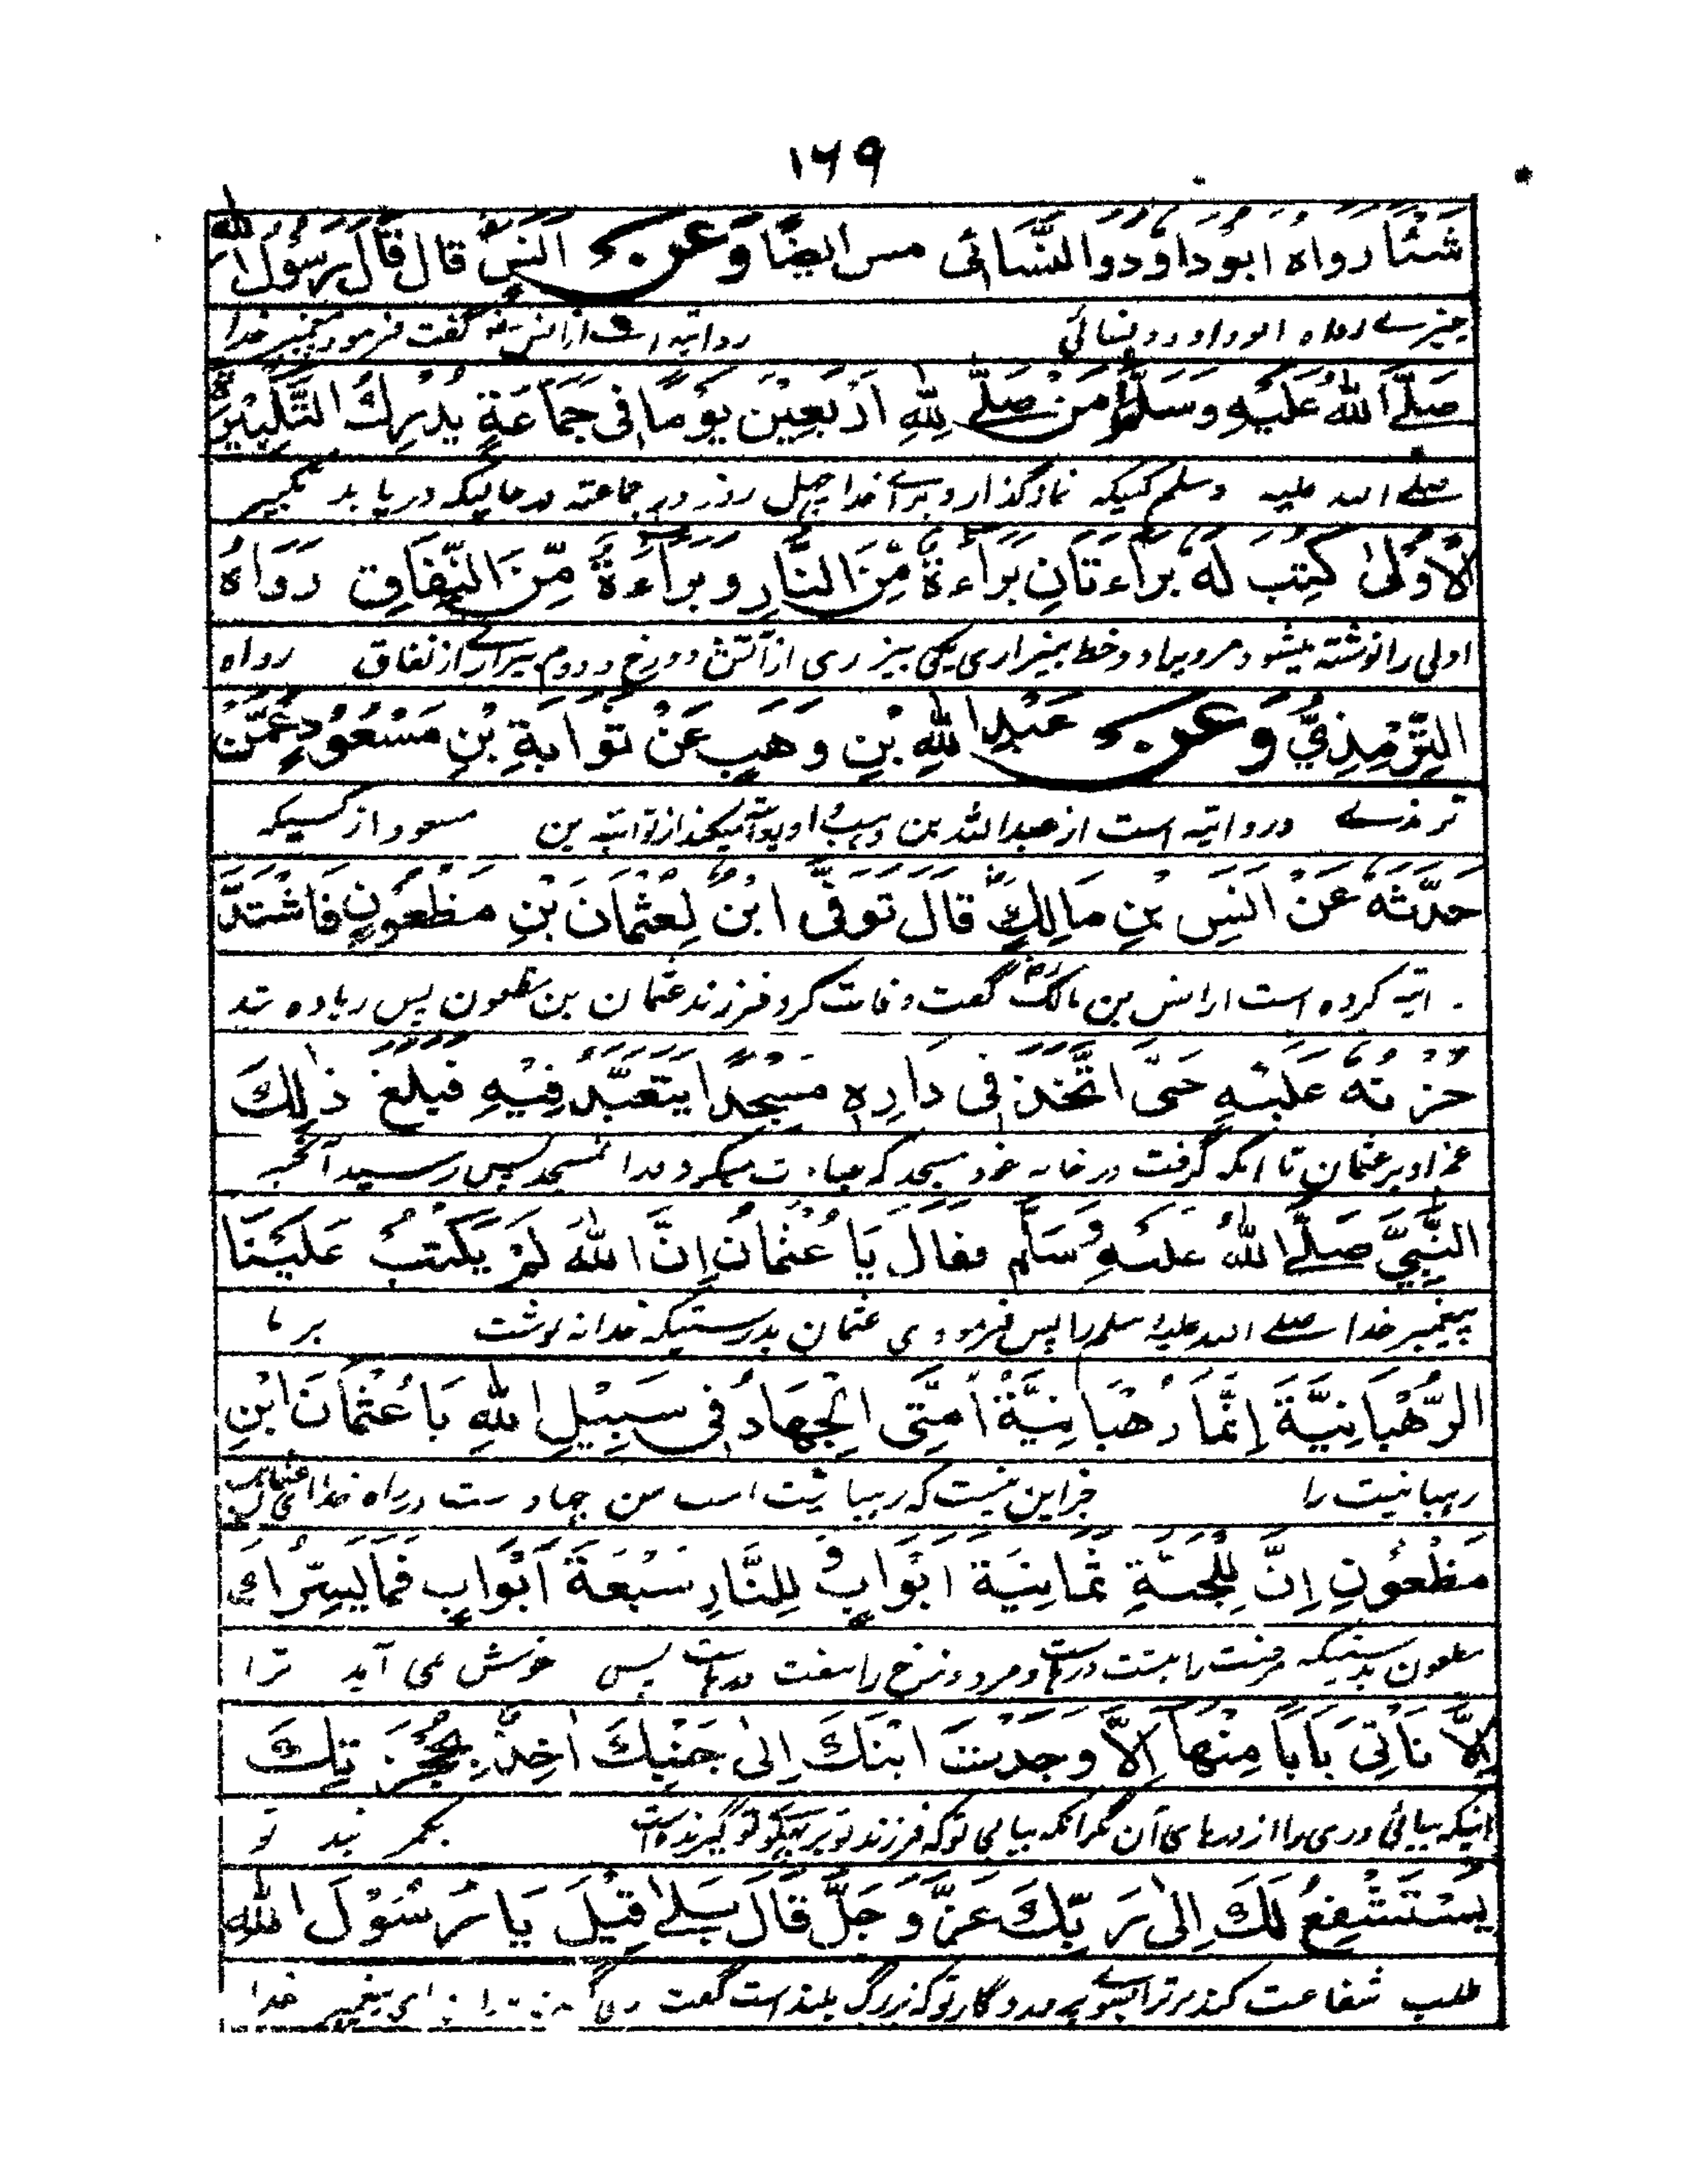 ١٦٩
شَيْئًا رواه ابوداؤد والنسائى مس ايضًا وَعن انسٍ قال قَالَ رَسُوْلُ الله
چیزے رواه ابوداود و نسائی روایته است از انس گفت فرمود پیغمبر خدا
صَلَّے اللهُ عَلَيْهِ وَسَلَّمَ مَنْ صَلّٰے لِلهِ اَرْبَعِيْنَ يَوْمًا فِى جَمَاعَةٍ يُدْرِكُ التَّكْبِيْرَةَ
صلے الله علیه وسلم کسیکه نماز گذارد برائے خدا چهل روز در جماعته در حالیکه دریابد تکبیر
الْاُوْلٰى كُتِبَ لَهُ بَرَاءَتَانِ بَرَاءَةٌ مِّنَ النَّارِ وَ بَرَاءَةٌ مِّنَ النِّفَاقِ رَوَاهُ
اولی را نوشته میشود مر ویرا دو خط بیزاری یکی بیزری از آتش دوزخ و دوم بیزارے از نفاق رواه
التِّرْمِذِىُّ وَعن عَبْدِ اللهِ بْنِ وَهَبٍ عَنْ تَوَابَةِ بْنِ مَسْعُوْدٍ عَمَّنْ
ترمذے و روایته است از عبدالله بن وهب او روایت میکند از توابته بن مسعود از کسیکه
حَدَّثَهُ عَنْ اَنَسِ بْنِ مَالِكٍ قَالَ تَوَفَّى ابْنٌ لِعُثْمَانَ بْنِ مَظْعُوْنٍ فَاشْتَدَّ
اتیه کرده است از انس بن مالک گفت وفات کرد فرزند عثمان بن مظعون پس زیاده شد
حُزْنُهُ عَلَيْهِ حَتّٰى اتَّخَذَ فِى دَارِهِ مَسْجِدًا يَتَعَبَّدُ فِيْهِ فَبَلَغَ ذٰلِكَ
غم او بر عثمان تا انکه گرفت در خانه خود مسجد که عبادت میکرد در انمسجد پس رسید آنخبر
النَّبِيَّ صَلَّے اللهُ عَلَيْهِ وَسَلَّمَ فقالَ يَا عُثْمَانُ اِنَّ اللهَ لَمْ يَكْتُبْ عَلَيْنَا
پیغمبر خدا صلے الله علیه سلم را پس فرمود ی عثمان بدرستیکه خدا نه نوشت بر ما
الرُّهْبَانِيَّةَ اِنَّمَا رُهْبَانِيَّةُ اُمَّتِى الْجِهَادُ فِى سَبِيْلِ اللهِ يَا عُثْمَانَ ابْنِ
رهبانیت را جز این نیست که رهبانیت امت من جهاد ست در راه خدا ای عثمان بن
مَظْعُوْنِ اِنَّ لِلْجَنَّةِ ثَمَانِيَةَ اَبْوَابٍ وَ لِلنَّارِ سَبْعَةَ اَبْوَابٍ فَمَا يَسِرُّكَ
مظعون بدرستیکه مر جنت را هشت در هاست و مر دوزخ را هفت در هاست پس خوش نمی آید ترا
اِلَّا تَاْتِىَ بَابًا مِنْهَا اِلَّا وَجَدْتَ ابْنَكَ اِلٰى جَنْبِكَ اٰخِذٌ بِحُجْزَتِكَ
اینکه بیائی دری را از درهای آن مگر انکه بیابی تو که فرزند تو بر پهلو تو گیرنده است بکمر بند تو
يَسْتَشْفِعُ لَكَ اِلٰى رَبِّكَ عَزَّ وَ جَلَّ قَالَ بَلٰے قِيْلَ يَا رَسُوْلَ اللهِ
طلب شفاعت کند مر ترا بسوے پروردگار تو که بزرگ بلند است گفت ای پیغمبر خدا